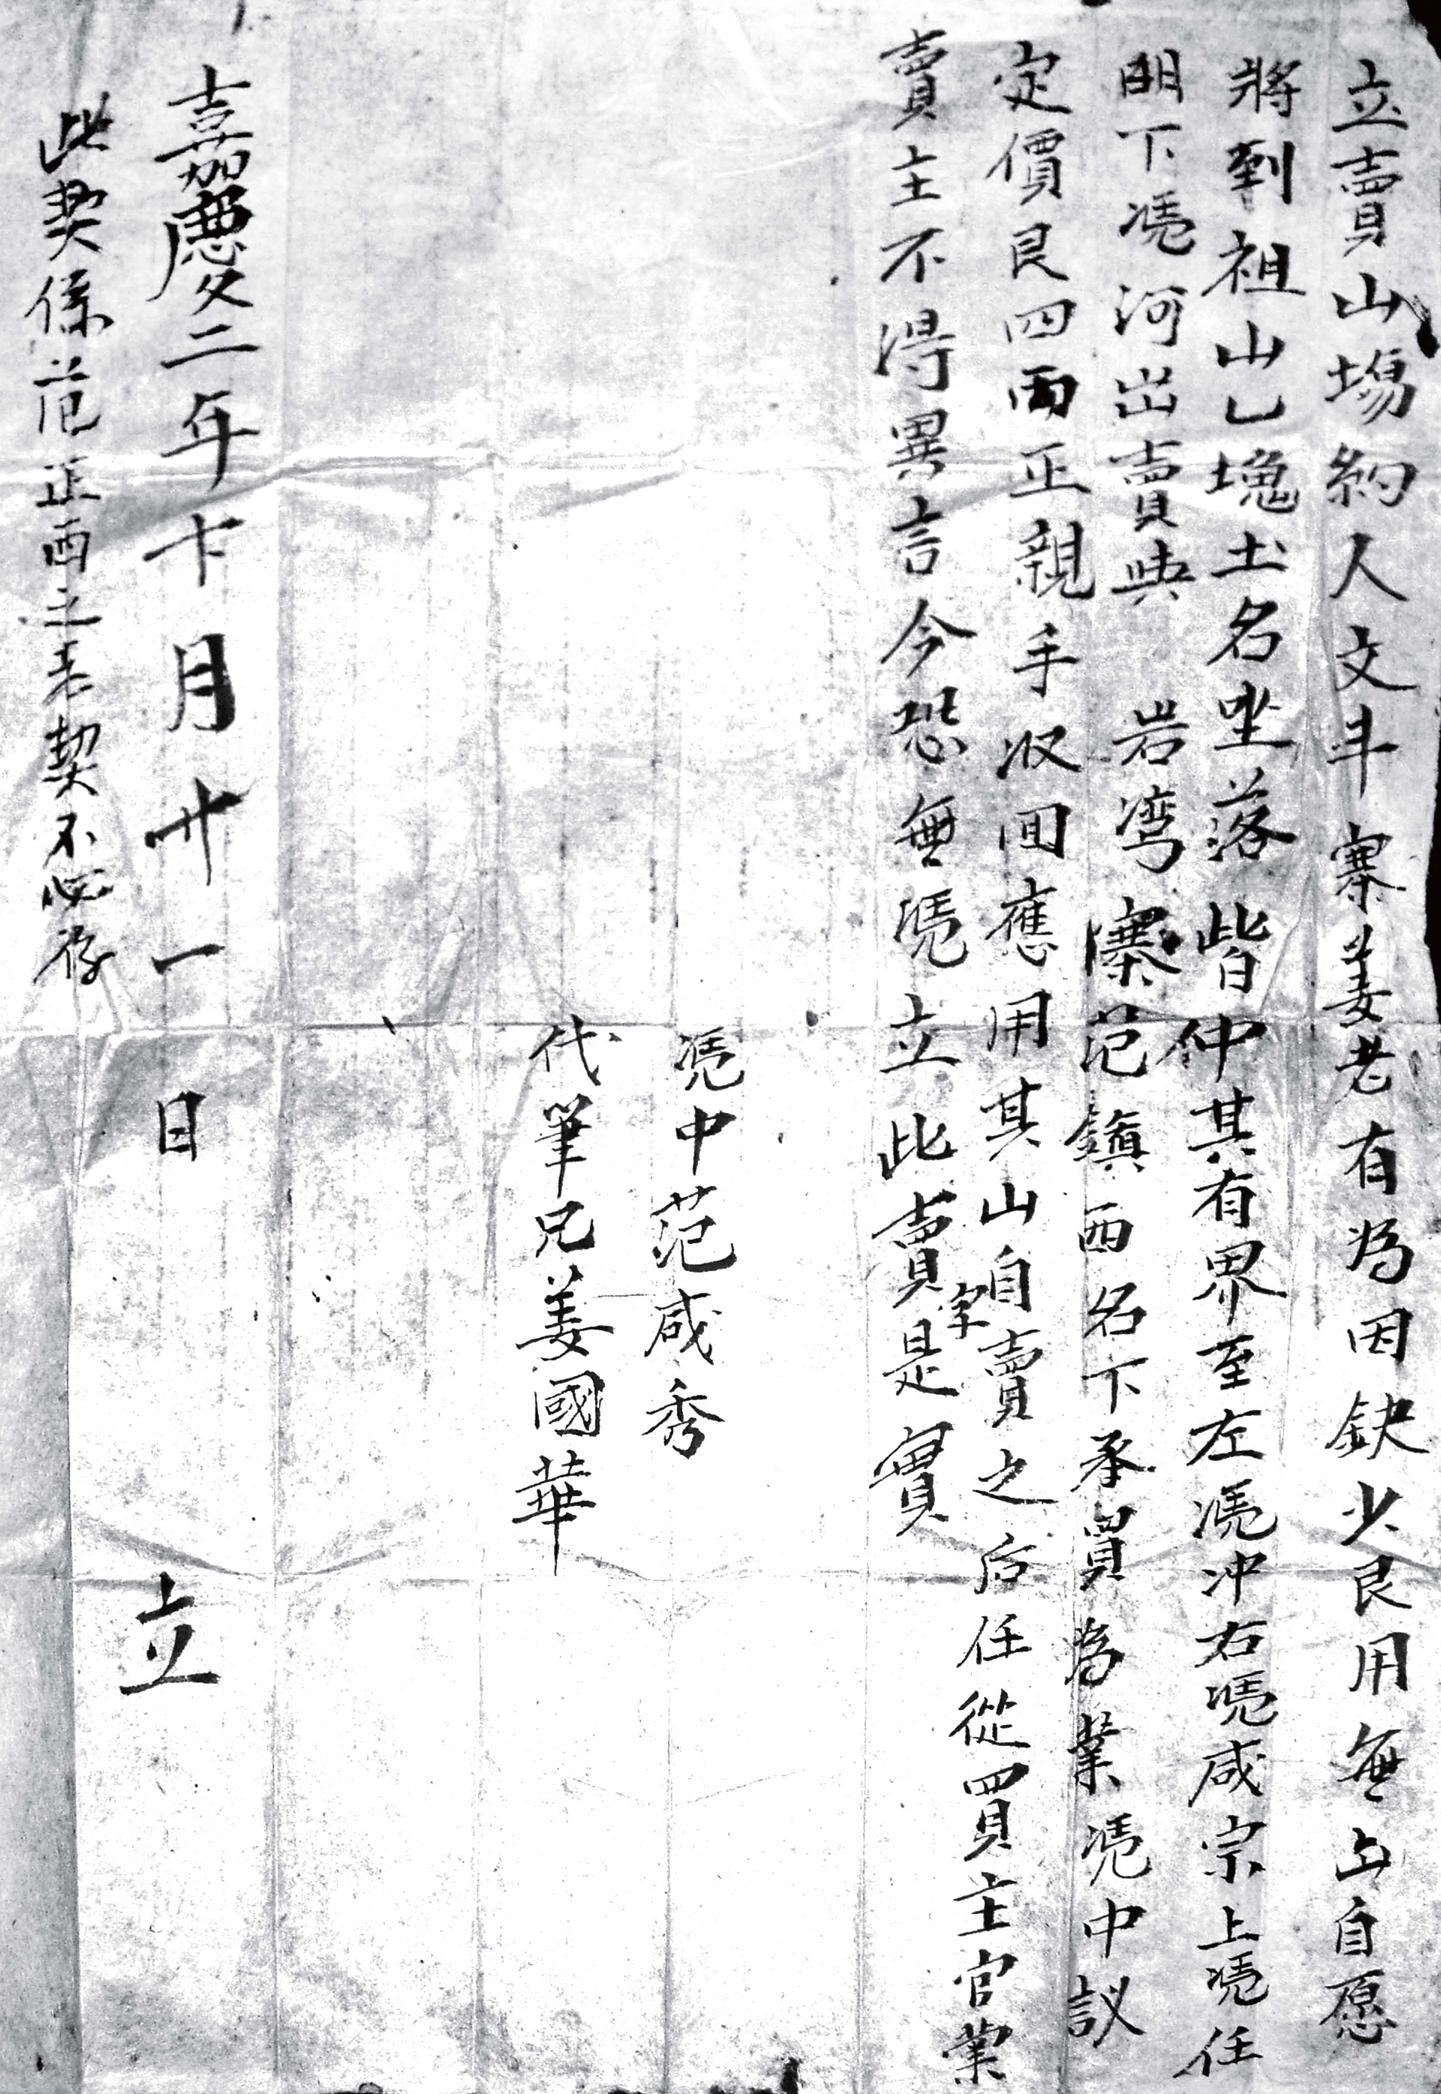 立賣山塲約人文斗寨姜老有為因缺少艮用無出自愿
將到祖山乙塊土名坐落皆仲其有界至左凴冲右凴咸宗上凴任
明下凴河出賣與岩湾寨范鎮西名下承買為業凴中议
定價艮四两正親手收回應用其山自賣之后任從買主官業
賣主不淂異言今恐無凴立此賣字是實
凴中范咸秀
代筆兄姜國華
嘉慶二年十月廿一日立
此契係范正西之老契不必存